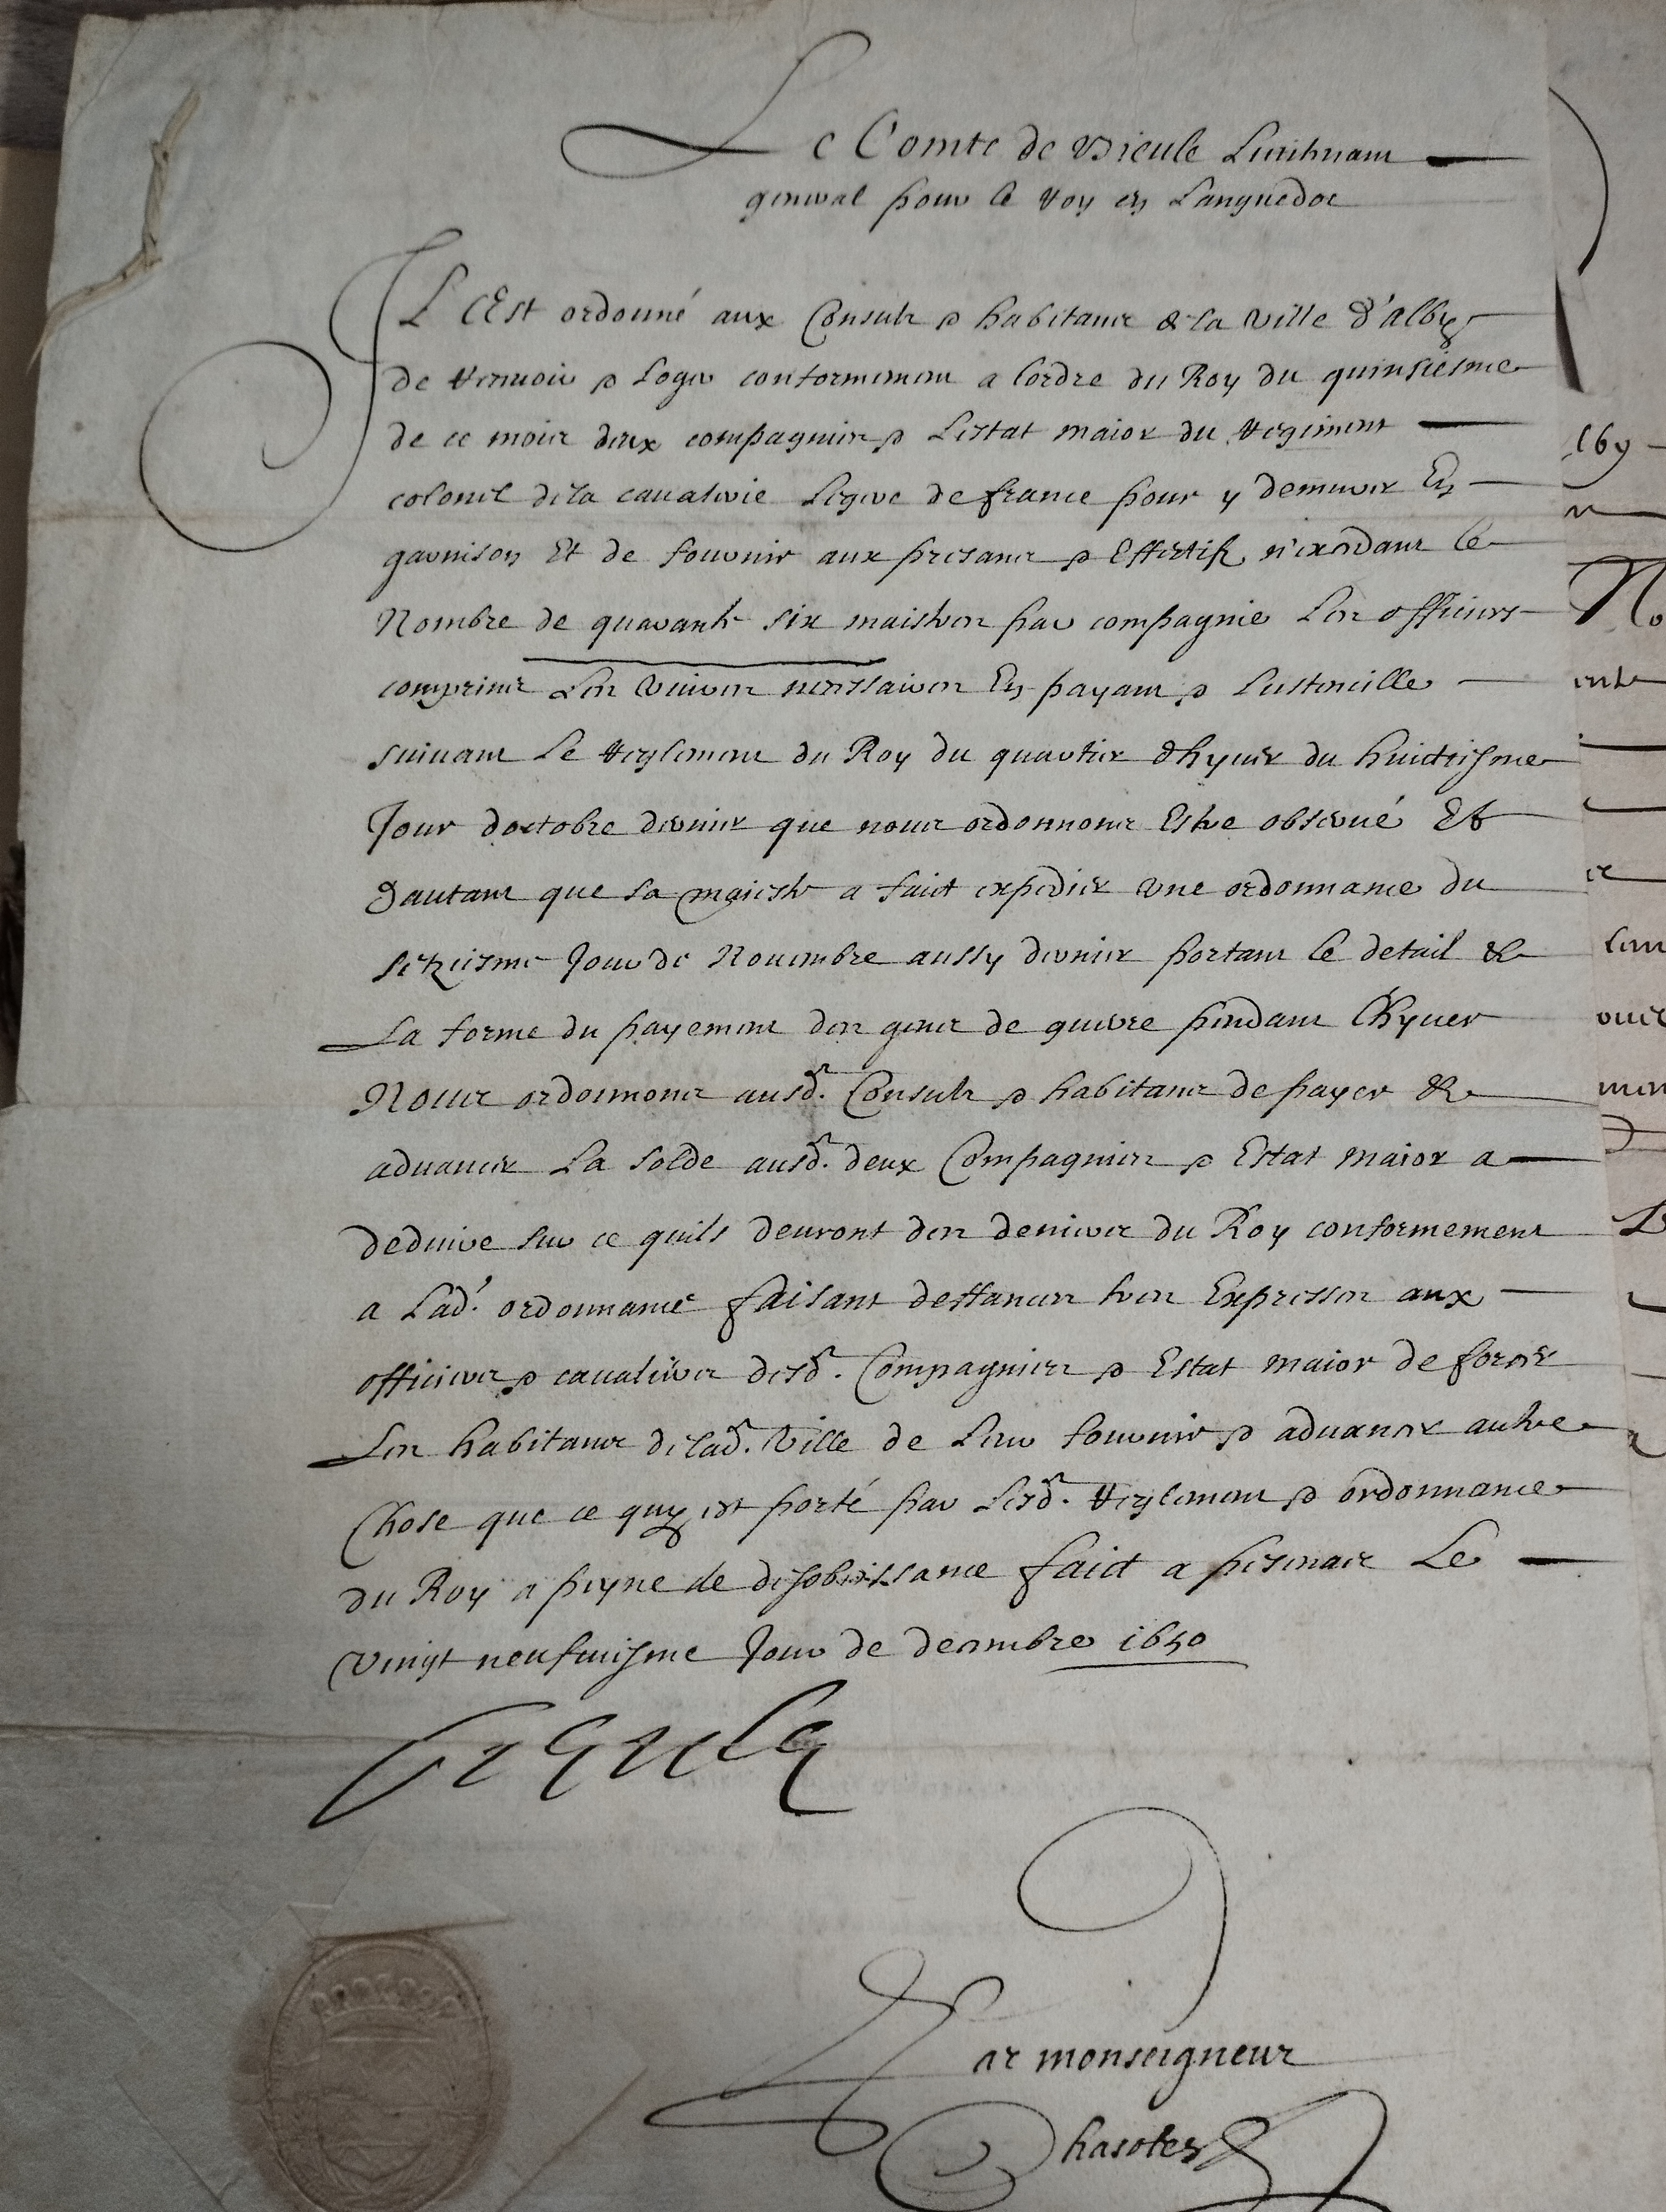 Le Comte de Bieule Lieutenant
general pour le Roy en Languedoc
IL Est ordonné aux Consuls & habitans de la ville d'alby
de recevoir & loger conformement a lordre du Roy du quinsiesme
de ce mois deux compagnies & lestat maior du regiment
colonel de la cavalerie legere de france pour y demeurer En
garnison Et de fournir aux presans & Effectifs n'excedant le
Nombre de quarante six maistres par compagnie les officiers
comprins Les vivres necessaires En payant & lustencille
suivant Le reglement du Roy du quartier dhyver du huictiesme
Jour doctobre dernier que nous ordonnons Estre observé Et
dautant que sa maieste a faict expedier une ordonnance du
setziesme Jour de Novembre aussy dernier portant le detail &
La forme du payement des gens de guerre pendant Lhyver
Nous ordonnons ausd. Consuls & habitans de payer &
advancer La solde ausd. deux Compagnies & Estat maior a
deduire sur ce quils devront des deniers du Roy conformement
a Lad. ordonnance faisant deffances tres Expresses aux
officiers & cavaliers desd. Compagnies & Estat maior de forcer
Les habitans de lad. ville de leur fournir & advancer autre
Chose que ce quy est porté par lesd. reglement & ordonnance
du Roy a peyne de desobeissance faict a pesenas Le
vingt neufviesme Jour de decembre 1650
Bieule
Par monseigneur
Chasotes
169
No